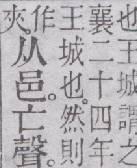 也王城謂之
襄二十四年
王城也。然則
作
夾。
从邑。亡聲。